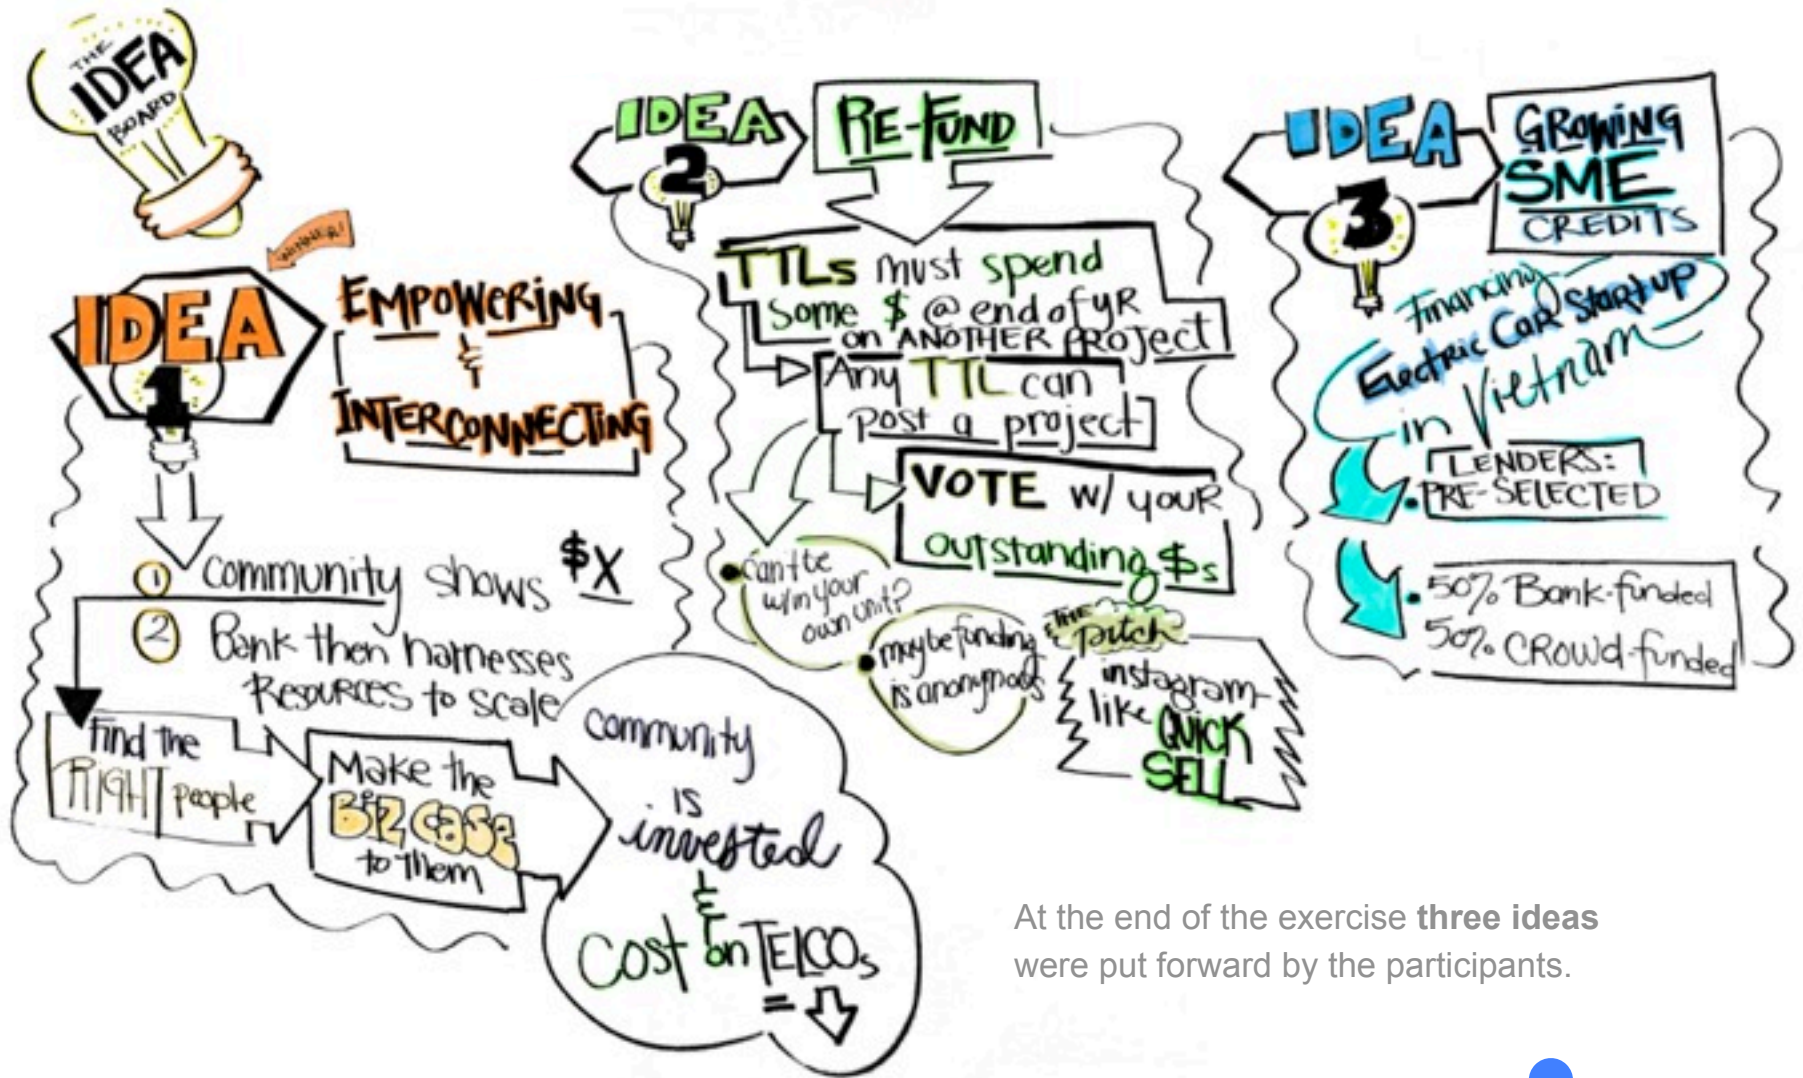 THE
IDEA
BOARD
WINNER!
IDEA
1
EMPOWERING
&
INTERCONNECTING
1 community shows $X
2 Bank then harnesses
Resources to scale
Find the
RIGHT people
Make the
BIZ CASE
to Them
community
is
invested
&
Cost on TELCOs
= 
IDEA
2
RE-FUND
TTLs must spend
some $ @ end of yR
on ANOTHER PROJect
Any TTL can
post a project
VOTE w/ youR
outstanding $s
can't be
w/in your
own unit?
maybe funding
is anonymous
THE
pitch
instagram-
like QUICK
SELL
IDEA
3
GROWING
SME
CREDITS
Financing
Electric Car Startup
in Vietnam
LENDERS:
PRE-SELECTED
50% Bank-funded
50% CROWd-funded
At the end of the exercise three ideas
were put forward by the participants.